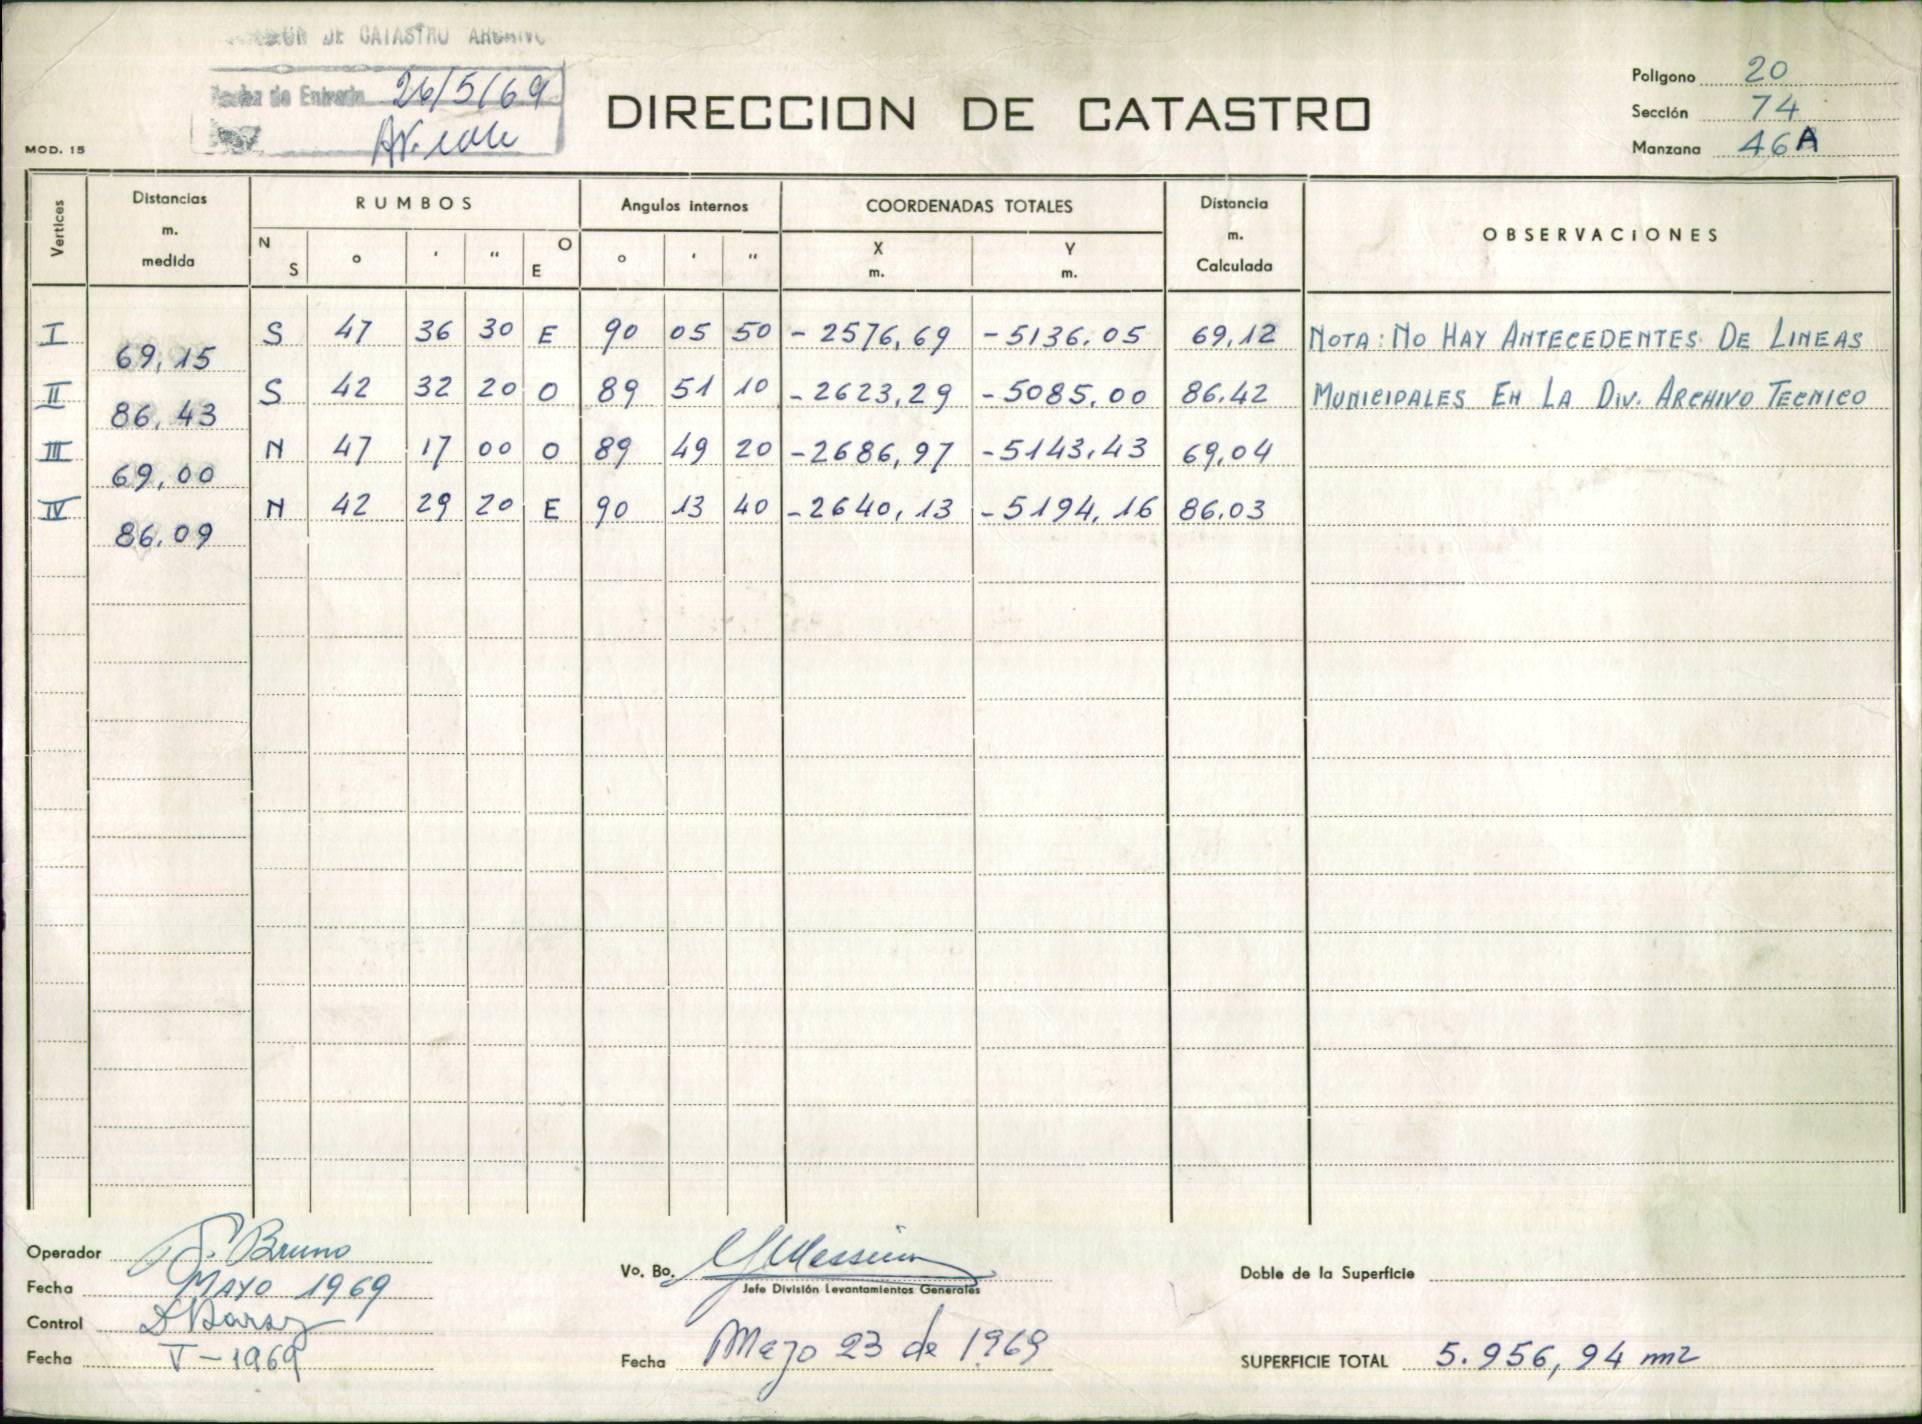 DE CATASTRO ARCHIVO
Fecha de Entrada 26/5/69
DIRECCION DE CATASTRO
Poligono 20
Sección 74
Manzana 46A
MOD. 15
Vertices
Distancias m. medida
RUMBOS
N S ° ' " O E
Angulos internos
° ' "
COORDENADAS TOTALES
X m. Y m.
Distancia m. Calculada
OBSERVACIONES
I S 47 36 30 E 90 05 50 -2576,69 -5136,05 69,12 NOTA: NO HAY ANTECEDENTES DE LINEAS
69,15
II S 42 32 20 O 89 51 10 -2623,29 -5085,00 86,42 MUNICIPALES EN LA DIV. ARCHIVO TECNICO
86,43
III N 47 17 00 O 89 49 20 -2686,97 -5143,43 69,04
69,00
IV N 42 29 20 E 90 13 40 -2640,13 -5194,16 86,03
86,09
Operador Bruno
Fecha MAYO 1969
Control
Fecha V-1969
Vo. Bo.
Jefe División Levantamientos Generales
Fecha Mayo 23 de 1969
Doble de la Superficie
SUPERFICIE TOTAL 5.956,94 m2